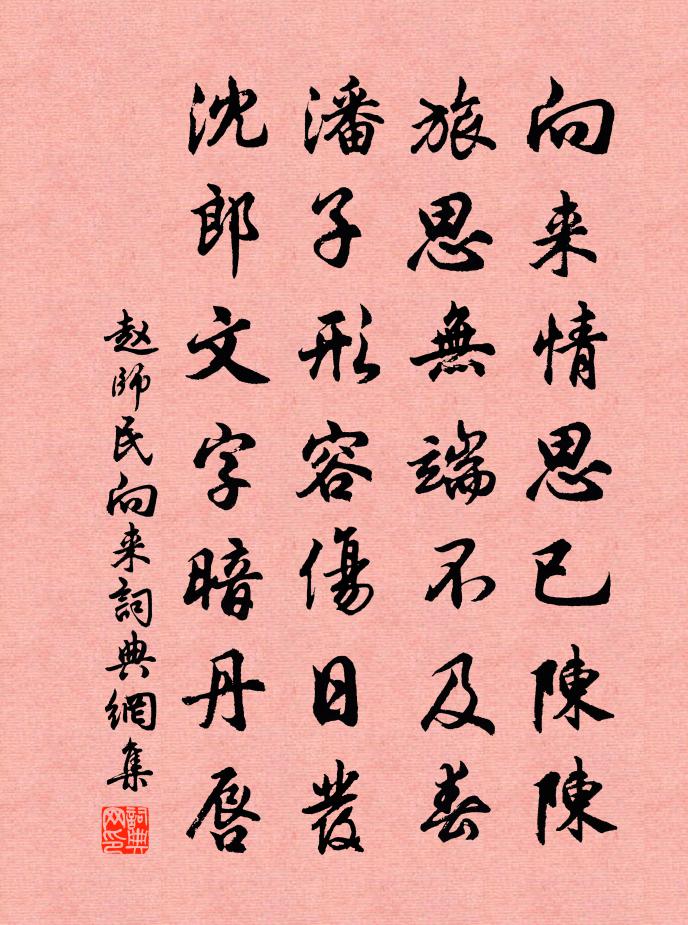 向来情思已陳陳
旅思無端不及春
潘子形容傷日發
沈郎文字暗丹唇
赵師民向来詞典網集
詞典网印